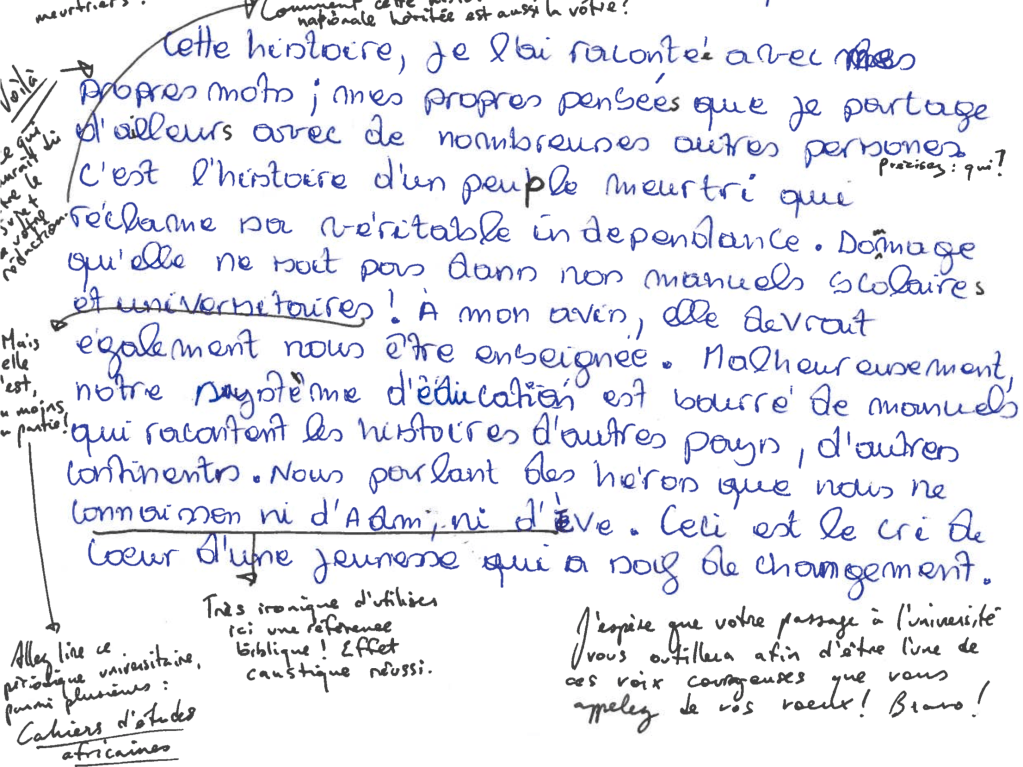 meurtriers !
Comment cette
nationale héritée est aussi la vôtre ?
Cette histoire, je l'ai racontée avec mes
propres mots ; mes propres pensées que je partage
d'ailleurs avec de nombreuses autres persones
précisez : qui ?
C'est l'histoire d'un peuple meurtri qui
réclame sa véritable indépendance. Domage
qu'elle ne soit pas dans nos manuels scolaires
et universitaires ! À mon avis, elle devrait
également nous être enseignée. Malheureusement,
notre système d'éducation est bourré de manuels
qui racontent les histoires d'autres pays, d'autres
continents. Nous parlant des héros que nous ne
connaisson ni d'Adm, ni d'Ève. Ceci est le cri de
coeur d'une jeunesse qui a soif de changement.
Voilà
ce qui
le
sujet
votre
rédaction
Mais
elle
l'est,
moins
partie !
Allez lire ce
périodique universitaire,
parmi plusieurs :
Cahiers d'études
africaines
Très ironique d'utiliser
ici une référence
biblique ! Effet
caustique réussi.
J'espère que votre passage à l'université
vous outillera afin d'être l'une de
ces voix courageuses que vous
appelez de vos voeux ! Bravo !